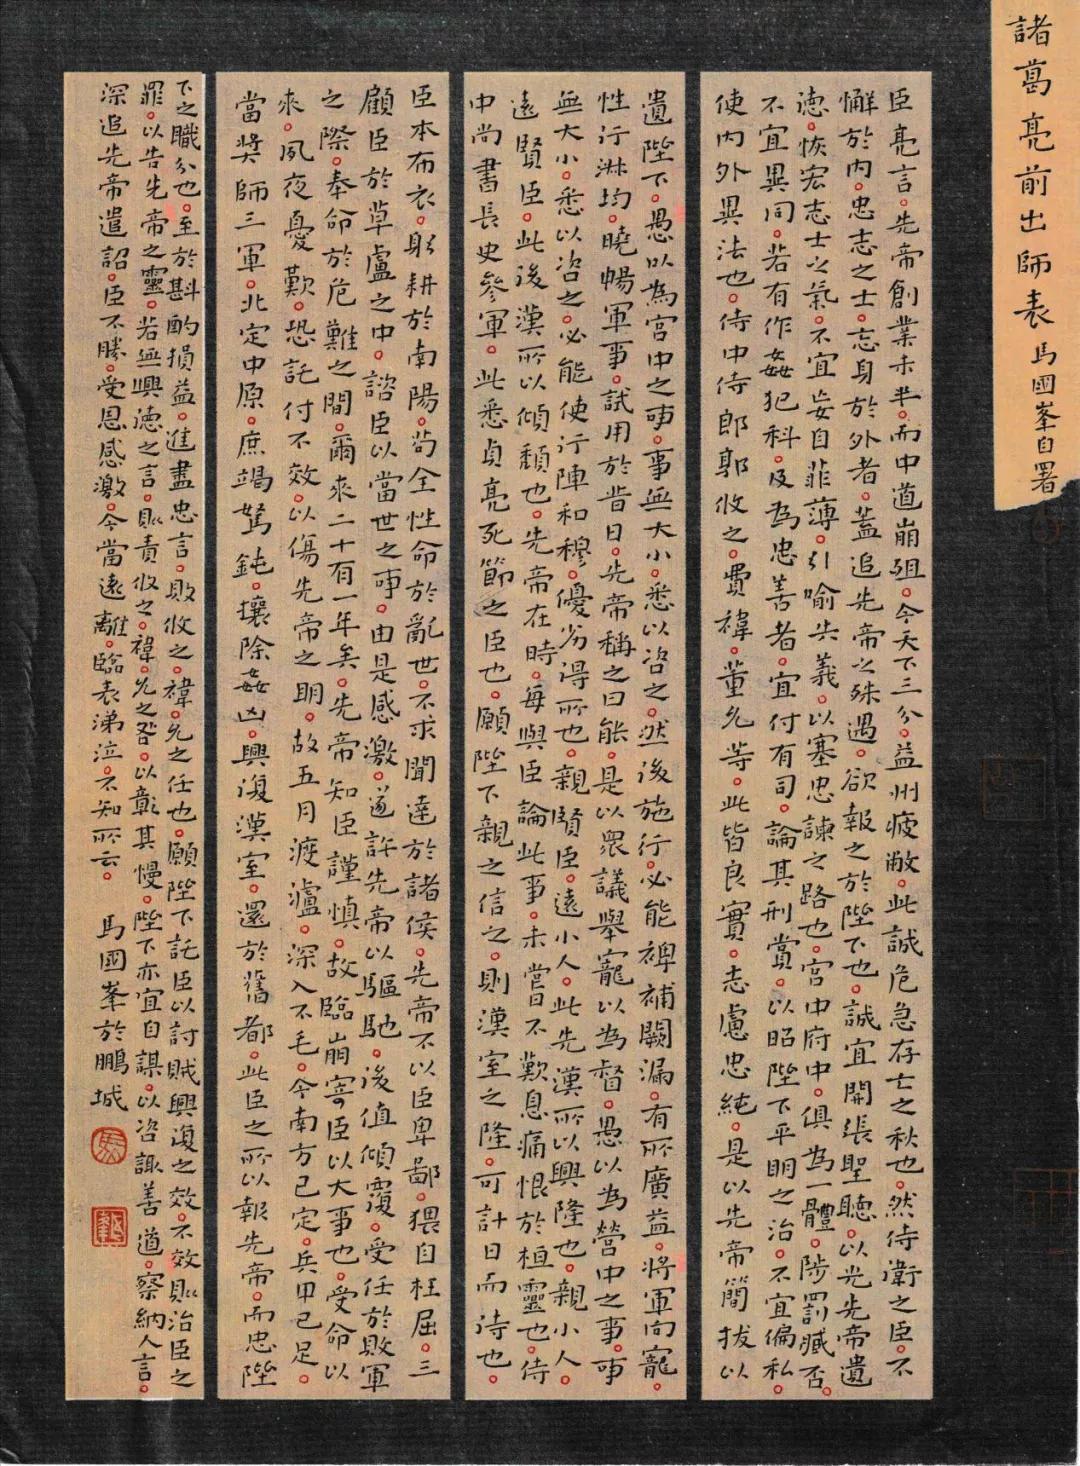 諸葛亮前出師表 馬國峯自署
臣亮言。先帝創業未半。而中道崩殂。今天下三分。益州疲敝。此誠危急存亡之秋也。然侍衛之臣。不
懈於內。忠志之士。忘身於外者。蓋追先帝之殊遇。欲報之於陛下也。誠宜開張聖聽。以光先帝遺
德。恢宏志士之氣。不宜妄自菲薄。引喻失義。以塞忠諫之路也。宮中府中。俱為一體。陟罰臧否。
不宜異同。若有作姦犯科。及為忠善者。宜付有司。論其刑賞。以昭陛下平明之治。不宜偏私。
使內外異法也。侍中侍郎郭攸之。費禕。董允等。此皆良實。志慮忠純。是以先帝簡拔以
遺陛下。愚以為宮中之事。事無大小。悉以咨之。然後施行。必能裨補闕漏。有所廣益。將軍向寵。
性行淋均。曉暢軍事。試用於昔日。先帝稱之曰能。是以眾議舉寵以為督。愚以為營中之事。事
無大小。悉以咨之。必能使行陣和穆。優劣得所也。親賢臣。遠小人。此先漢所以興隆也。親小人。
遠賢臣。此後漢所以傾頹也。先帝在時。每與臣論此事。未嘗不歎息痛恨於桓靈也。侍
中尚書長史參軍。此悉貞亮死節之臣也。願陛下親之信之。則漢室之隆。可計日而待也。
臣本布衣。躬耕於南陽。苟全性命於亂世。不求聞達於諸侯。先帝不以臣卑鄙。猥自枉屈。三
顧臣於草廬之中。諮臣以當世之事。由是感激。遂許先帝以驅馳。後值傾覆。受任於敗軍
之際。奉命於危難之間。爾來二十有一年矣。先帝知臣謹慎。故臨崩寄臣以大事也。受命以
來。夙夜憂歎。恐託付不效。以傷先帝之明。故五月渡瀘。深入不毛。今南方已定。兵甲已足。
當獎師三軍。北定中原。庶竭駑鈍。攘除姦凶。興復漢室。還於舊都。此臣之所以報先帝。而忠陛
下之職分也。至於斟酌損益。進盡忠言。敗攸之。禕。允之任也。願陛下託臣以討賊興復之效。不效則治臣之
罪。以告先帝之靈。若無興德之言。則責攸之。禕。允之咎。以彰其慢。陛下亦宜自謀。以咨諏善道。察納人言。
深追先帝遺詔。臣不勝。受恩感激。今當遠離。臨表涕泣。不知所云。 馬國峯於鵬城